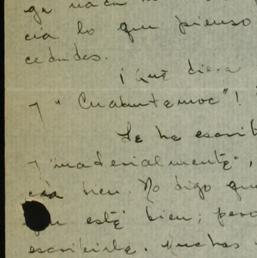 cia lo que pienso
cedudos.
¡ Qué diera
y "Cuauhtemoc"!
Le he escrit
y "materialmente",
bien. No digo que
esté bien; pero
escribirle. Muchas